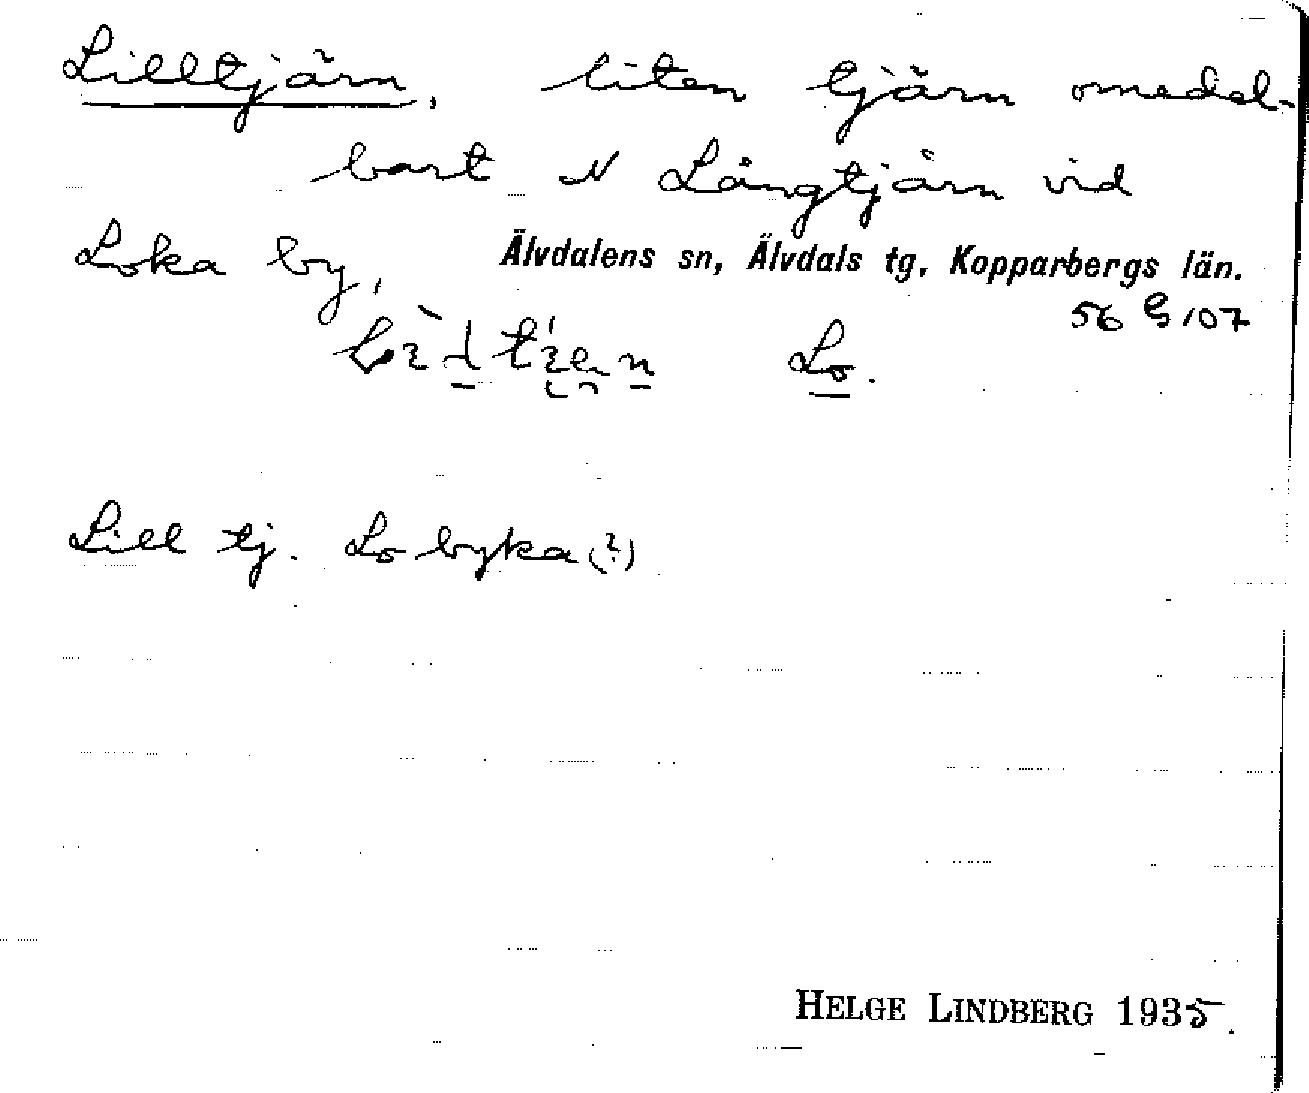 Lilltjärn, liten tjärn omedel-
bart N Långtjärn vid
Loka by, Älvdalens sn, Älvdals tg, Kopparbergs län.
56 G 107
Lo.
Lill tj. Lo byka (?)
HELGE LINDBERG 1935.